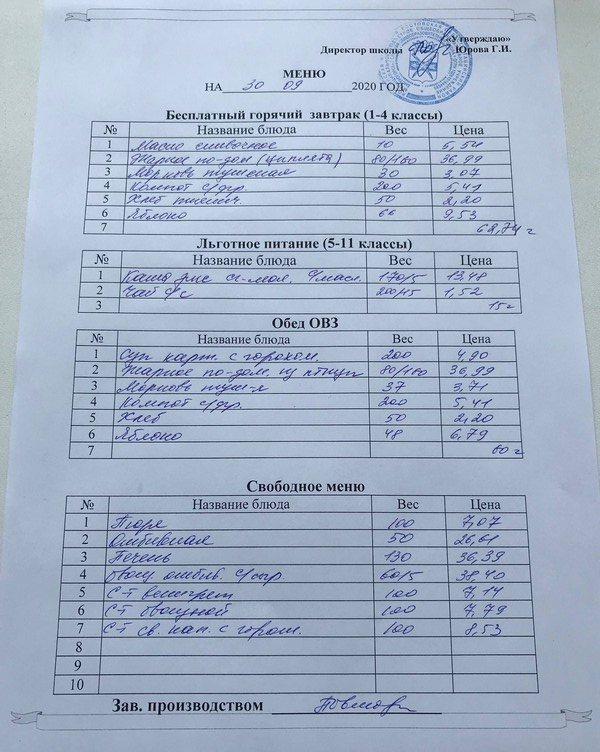 «Утверждаю»
Директор школы Юрова Г.И.
МЕНЮ
НА 30 09 2020 ГОД.
Бесплатный горячий завтрак (1-4 классы)
№ Название блюда Вес Цена
1 Масло сливочное 10 5,54
2 Жаркое по-дом (цыплята) 80/180 36,99
3 Морковь тушеная 30 3,07
4 Компот с/фр. 200 5,41
5 Хлеб пшенич. 50 2,20
6 Яблоко 66 9,53
7 62,74
Льготное питание (5-11 классы)
№ Название блюда Вес Цена
1 Каша рис сг-мол. с/масл. 170/5 13,48
2 Чай с/с 200/15 1,52
3 15
Обед ОВЗ
№ Название блюда Вес Цена
1 Суп карт. с горохом. 200 4,90
2 Жаркое по-дом. из птицы 80/180 36,99
3 Морковь туш-я 37 3,71
4 Компот с/фр. 200 5,41
5 Хлеб 50 2,20
6 Яблоко 48 6,79
7 60
Свободное меню
№ Название блюда Вес Цена
1 Пюре 100 7,07
2 Отбивная 50 26,61
3 Печень 130 36,39
4 отбив. с/сыр. 60/5 38,40
5 С-т винегрет 100 7,14
6 С-т овощной 100 7,79
7 С-т св. кап. с горош. 100 8,53
8
9
10
Зав. производством